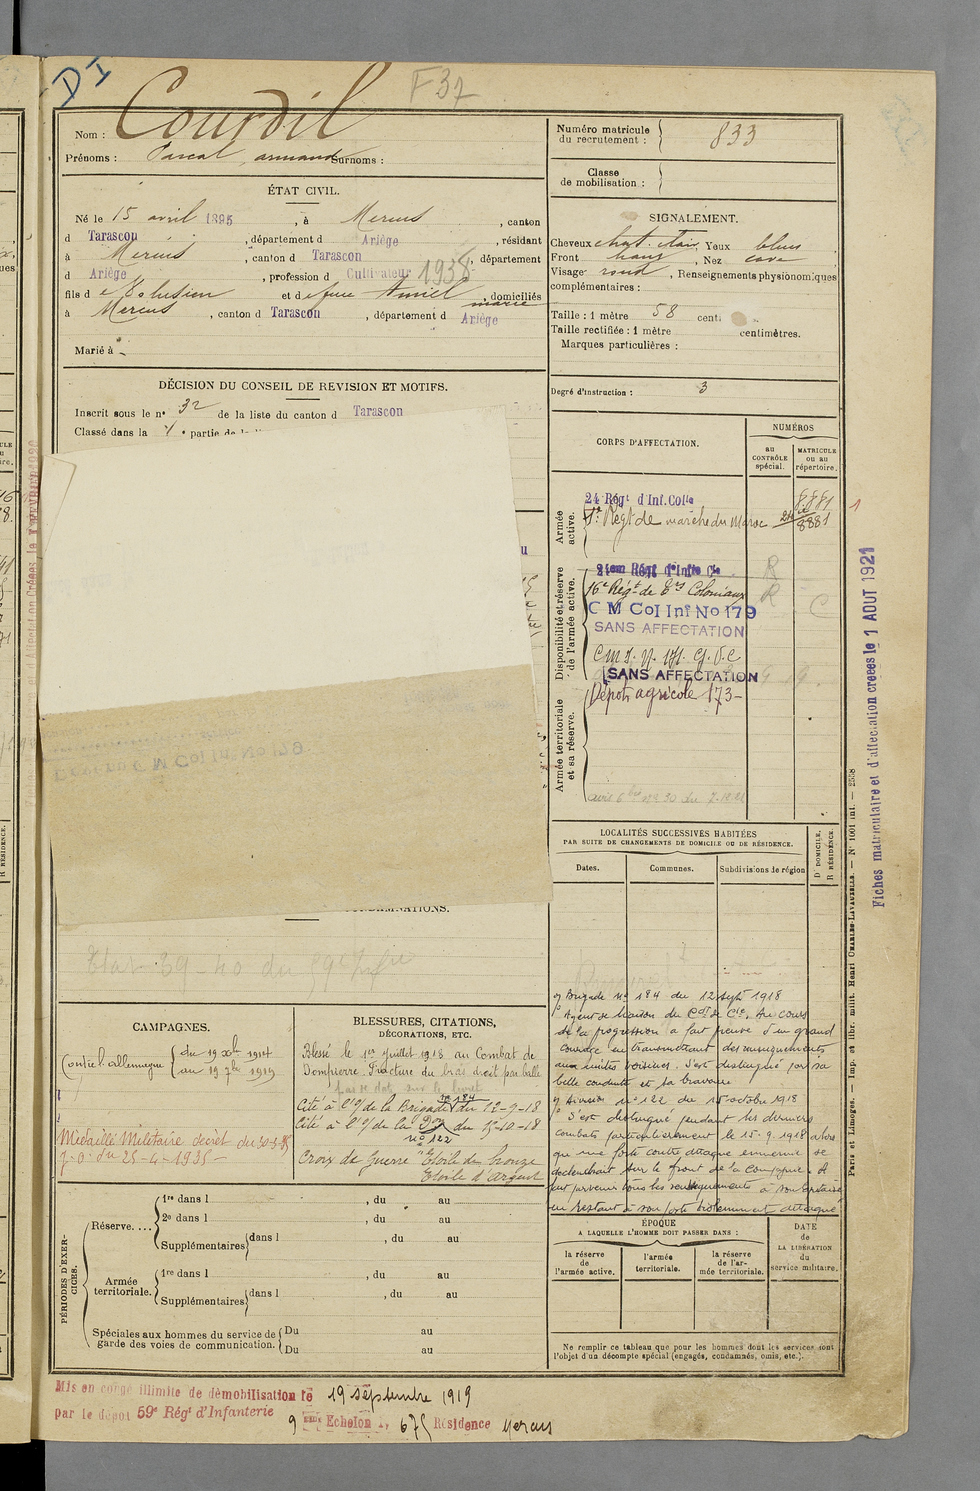 DI
F37
Nom : Courdil
Prénoms : Pascal, armand Surnoms :
Numéro matricule
du recrutement : 833
Classe
de mobilisation :
ÉTAT CIVIL.
Né le 15 avril 1895, à Mercus, canton
d Tarascon, département d Ariège, résidant
à Mercus, canton d Tarascon, département
d Ariège, profession d Cultivateur 1938
fils d et d feue Amiel marie, domiciliés
à Mercus, canton d Tarascon, département d Ariège
Marié à
SIGNALEMENT.
Cheveux chat. clair Yeux bleus
Front haut, Nez cave
Visage rond, Renseignements physionomiques
complémentaires :
Taille : 1 mètre 58 centi
Taille rectifiée : 1 mètre centimètres.
Marques particulières :
Degré d'instruction : 3
DÉCISION DU CONSEIL DE REVISION ET MOTIFS.
Inscrit sous le n° 32 de la liste du canton d Tarascon
Classé dans la partie de la
CORPS D'AFFECTATION.
NUMÉROS
au
CONTRÔLE
spécial.
MATRICULE
ou au
répertoire.
Armée
active.
24 Régt d'Inf. Colle
Régt de marche du Maroc 8881
Disponibilité et réserve
de l'armée active.
24eme Régt d'Infie Cle R
16e Régt de Coloniaux R C
C M Col Inf No 179
SANS AFFECTATION
SANS AFFECTATION
Armée territoriale
et sa réserve.
Dépôt agricole 173
Fiches matriculaire et d'affectation créées le 1 AOUT 1921
LOCALITÉS SUCCESSIVES HABITÉES
PAR SUITE DE CHANGEMENTS DE DOMICILE OU DE RÉSIDENCE.
Dates.
Communes.
Subdivisions de région
D' DOMICILE,
R RÉSIDENCE.
C M Col Inf No 179
CONDAMNATIONS.
CAMPAGNES.
Contre l'allemagne
du 19 Xbre 1914
au 19 7bre 1919
Médaille Militaire décret du
J.O. du 25-4-1935
BLESSURES, CITATIONS,
DÉCORATIONS, ETC.
Blessé le 1er Juillet 1918 au Combat de
Dompierre. Fracture du bras droit par balle
Cité à l'O/ de la Brigade 184 du 12-9-18
Cité à l'O/ de la Don du 15-10-18
n° 122
Croix de Guerre Etoile de bronze
Etoile d'argent
Brigade n° 184 du 12 Sept 1918
Agent de liaison du Cdt de Cie. Au cours
de la progression a fait preuve d'un grand
courage en transmettant des renseignements
aux unités voisines. S'est distingué par sa
belle conduite et sa bravoure
Division n° 122 du 15 octobre 1918
S'est distingué pendant les derniers
combats particulièrement le 15.9.1918 alors
qu'une forte contre attaque ennemie se
déclenchait sur le front de la compagnie. A
fait parvenir tous les renseignements à son Capitaine
en restant à son poste violemment attaqué
PÉRIODES D'EXER-
CICES.
Réserve....
1re dans l , du au
2e dans l , du au
Supplémentaires dans l , du au
Armée
territoriale.
1re dans l , du au
Supplémentaires dans l , du au
Spéciales aux hommes du service de
garde des voies de communication.
Du au
Du au
ÉPOQUE
A LAQUELLE L'HOMME DOIT PASSER DANS :
la réserve
de
l'armée active.
l'armée
territoriale.
la réserve
de l'ar-
mée territoriale.
DATE
de
LA LIBÉRATION
du
service militaire.
Ne remplir ce tableau que pour les hommes dont les services sont
l'objet d'un décompte spécial (engagés, condamnés, omis, etc.).
Paris et Limoges. — Imp. et libr. milit. Henri CHARLES-LAVAUZELLE. — N° 1001 int. — 2558
Mis en congé illimité de démobilisation le 19 septembre 1919
par le dépôt 59e Régt d'Infanterie
9 eme Echelon n° 675 Résidence Mercus